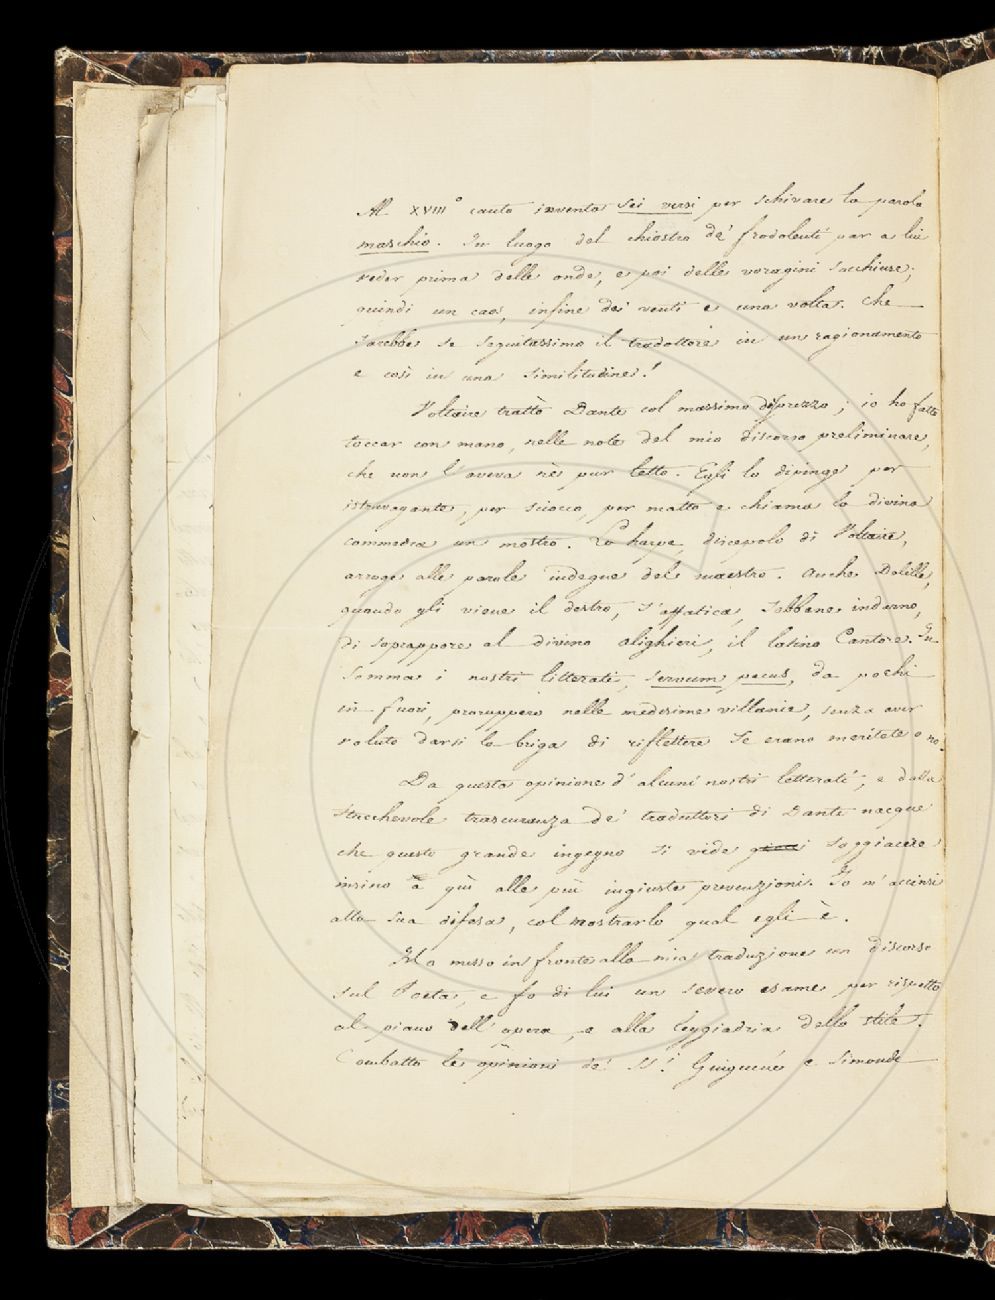 Al XVIII° canto inventa sei versi per schivare la parola
maschio. In luogo del chiostro de' frodolenti par a lui
veder prima delle onde, e poi delle voragini socchiuse;
quindi un caos, infine dei venti e una volta. Che
sarebbe se seguitassimo il traduttore in un ragionamento
e così in una similitudine!
Voltaire trattò Dante col massimo disprezzo; io ho fatto
toccar con mano, nelle note del mio discorso preliminare,
che non l'aveva nè pur letto. Egli lo dipinge per
istravagante, per sciocco, per matto e chiama la divina
commedia un mostro. La harpe, discepolo di Voltaire,
arroge alle parole indegne del maestro. Anche Delille,
quando gli viene il destro, s'affatica, sebbene indarno,
di soprapporre al divino alighieri, il latino Cantore. In
Somma i nostri litterati, servum pecus, da pochi
in fuori, proruppero nelle medesime villanie, senza aver
voluto darsi la briga di riflettere se erano meritate o no.
Da questa opinione d'alcuni nostri letterati; e dalla
stucchevole trascuranza de' traduttori di Dante nacque
che questo grande ingegno si vide soggiacere
insino a qui alle più ingiuste prevenzioni. Io m'accinsi
alla sua difesa, col mostrarlo qual egli è.
Ho messo in fronte alla mia traduzione un discorso
sul Poeta, e fo di lui un severo esame per rispetto
al piano dell'opera, e alla leggiadria dello stile.
Combatto le opinioni de' SS.i Guiguené e Simonde